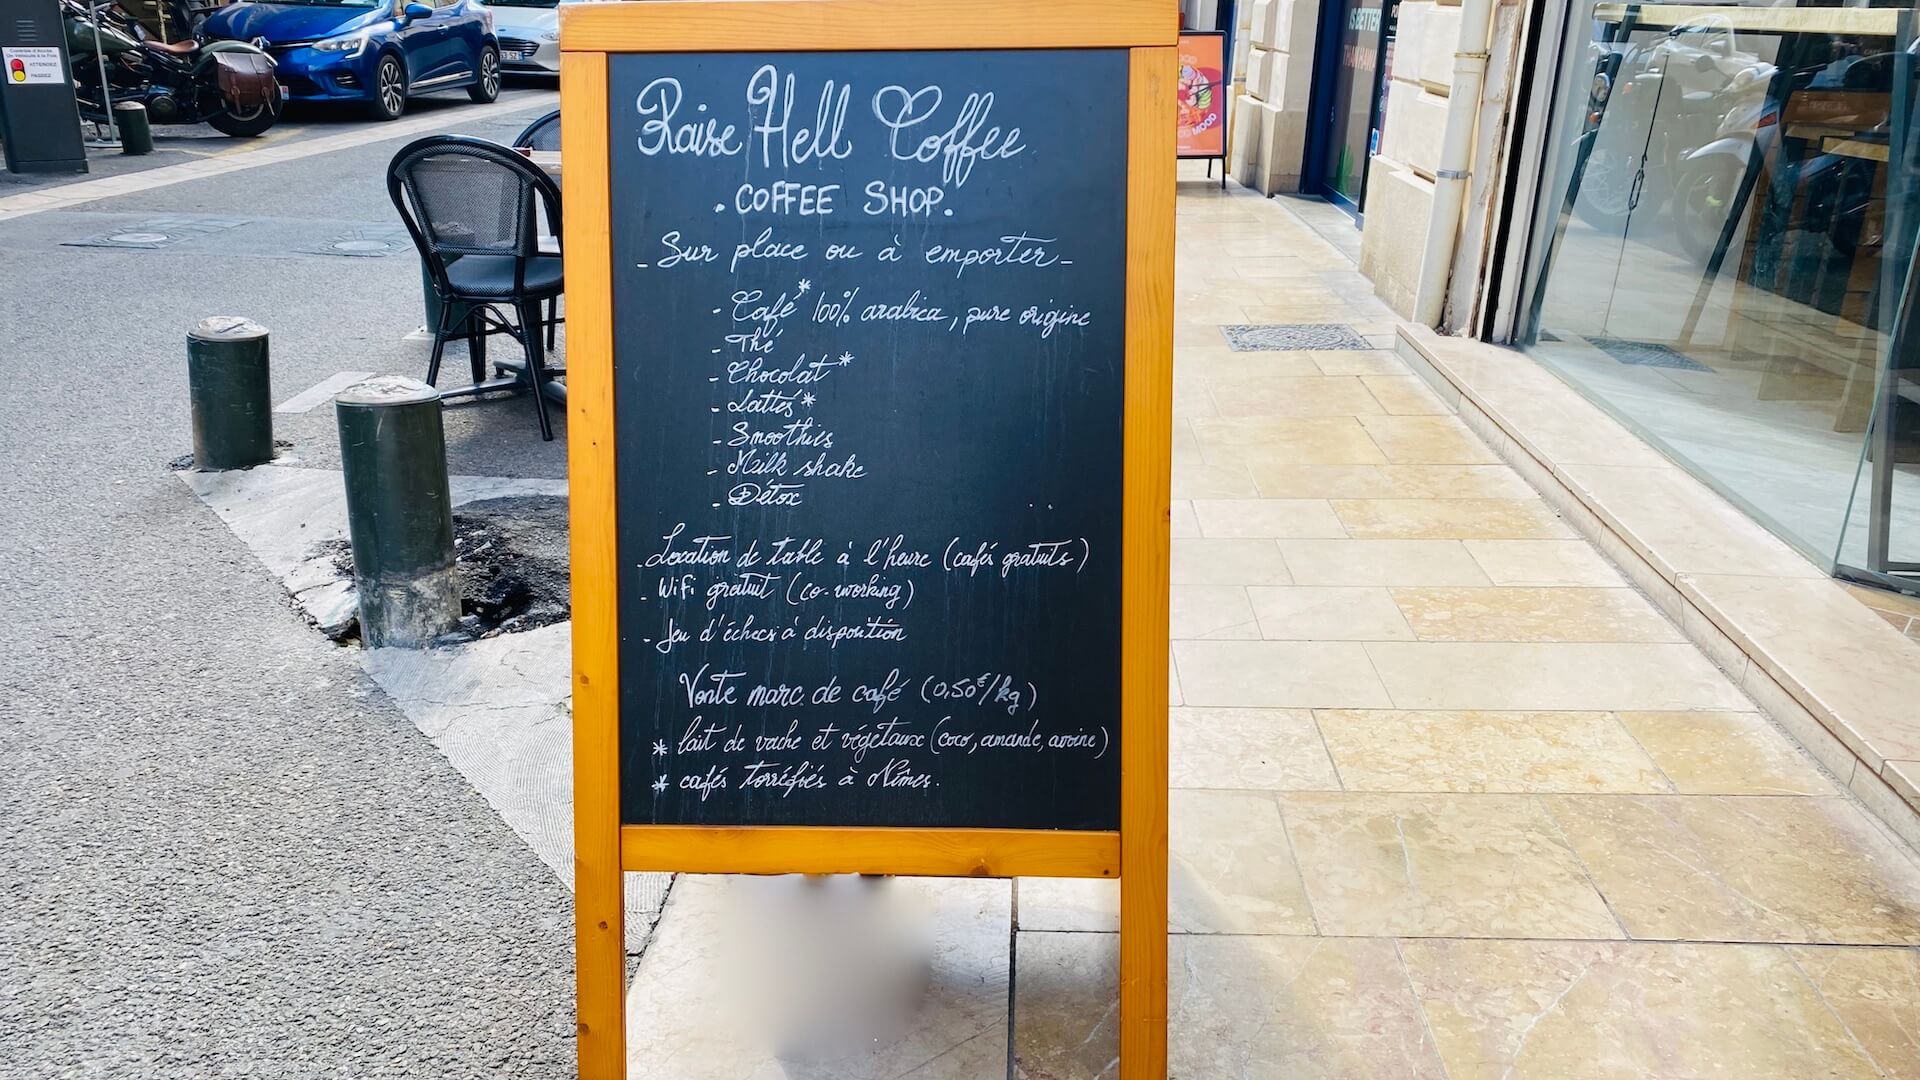 Contrôle d'Accès
Un Véhicule à la Fois
ATTENDEZ
PASSEZ
Raise Hell Coffee
. COFFEE SHOP.
- Sur place ou à emporter -
- Café* 100% arabica, pure origine
- Thé
- Chocolat*
- Lattés*
- Smoothies
- Milk shake
- Détox
- Location de table à l'heure (cafés gratuits)
- WiFi gratuit (co-working)
- Jeu d'échecs à disposition
Vente marc de café (0,50€/kg)
* lait de vache et végétaux (coco, amande, avoine)
* cafés torréfiés à Nîmes.
IS BETTER
THAN MAMA
MOOD